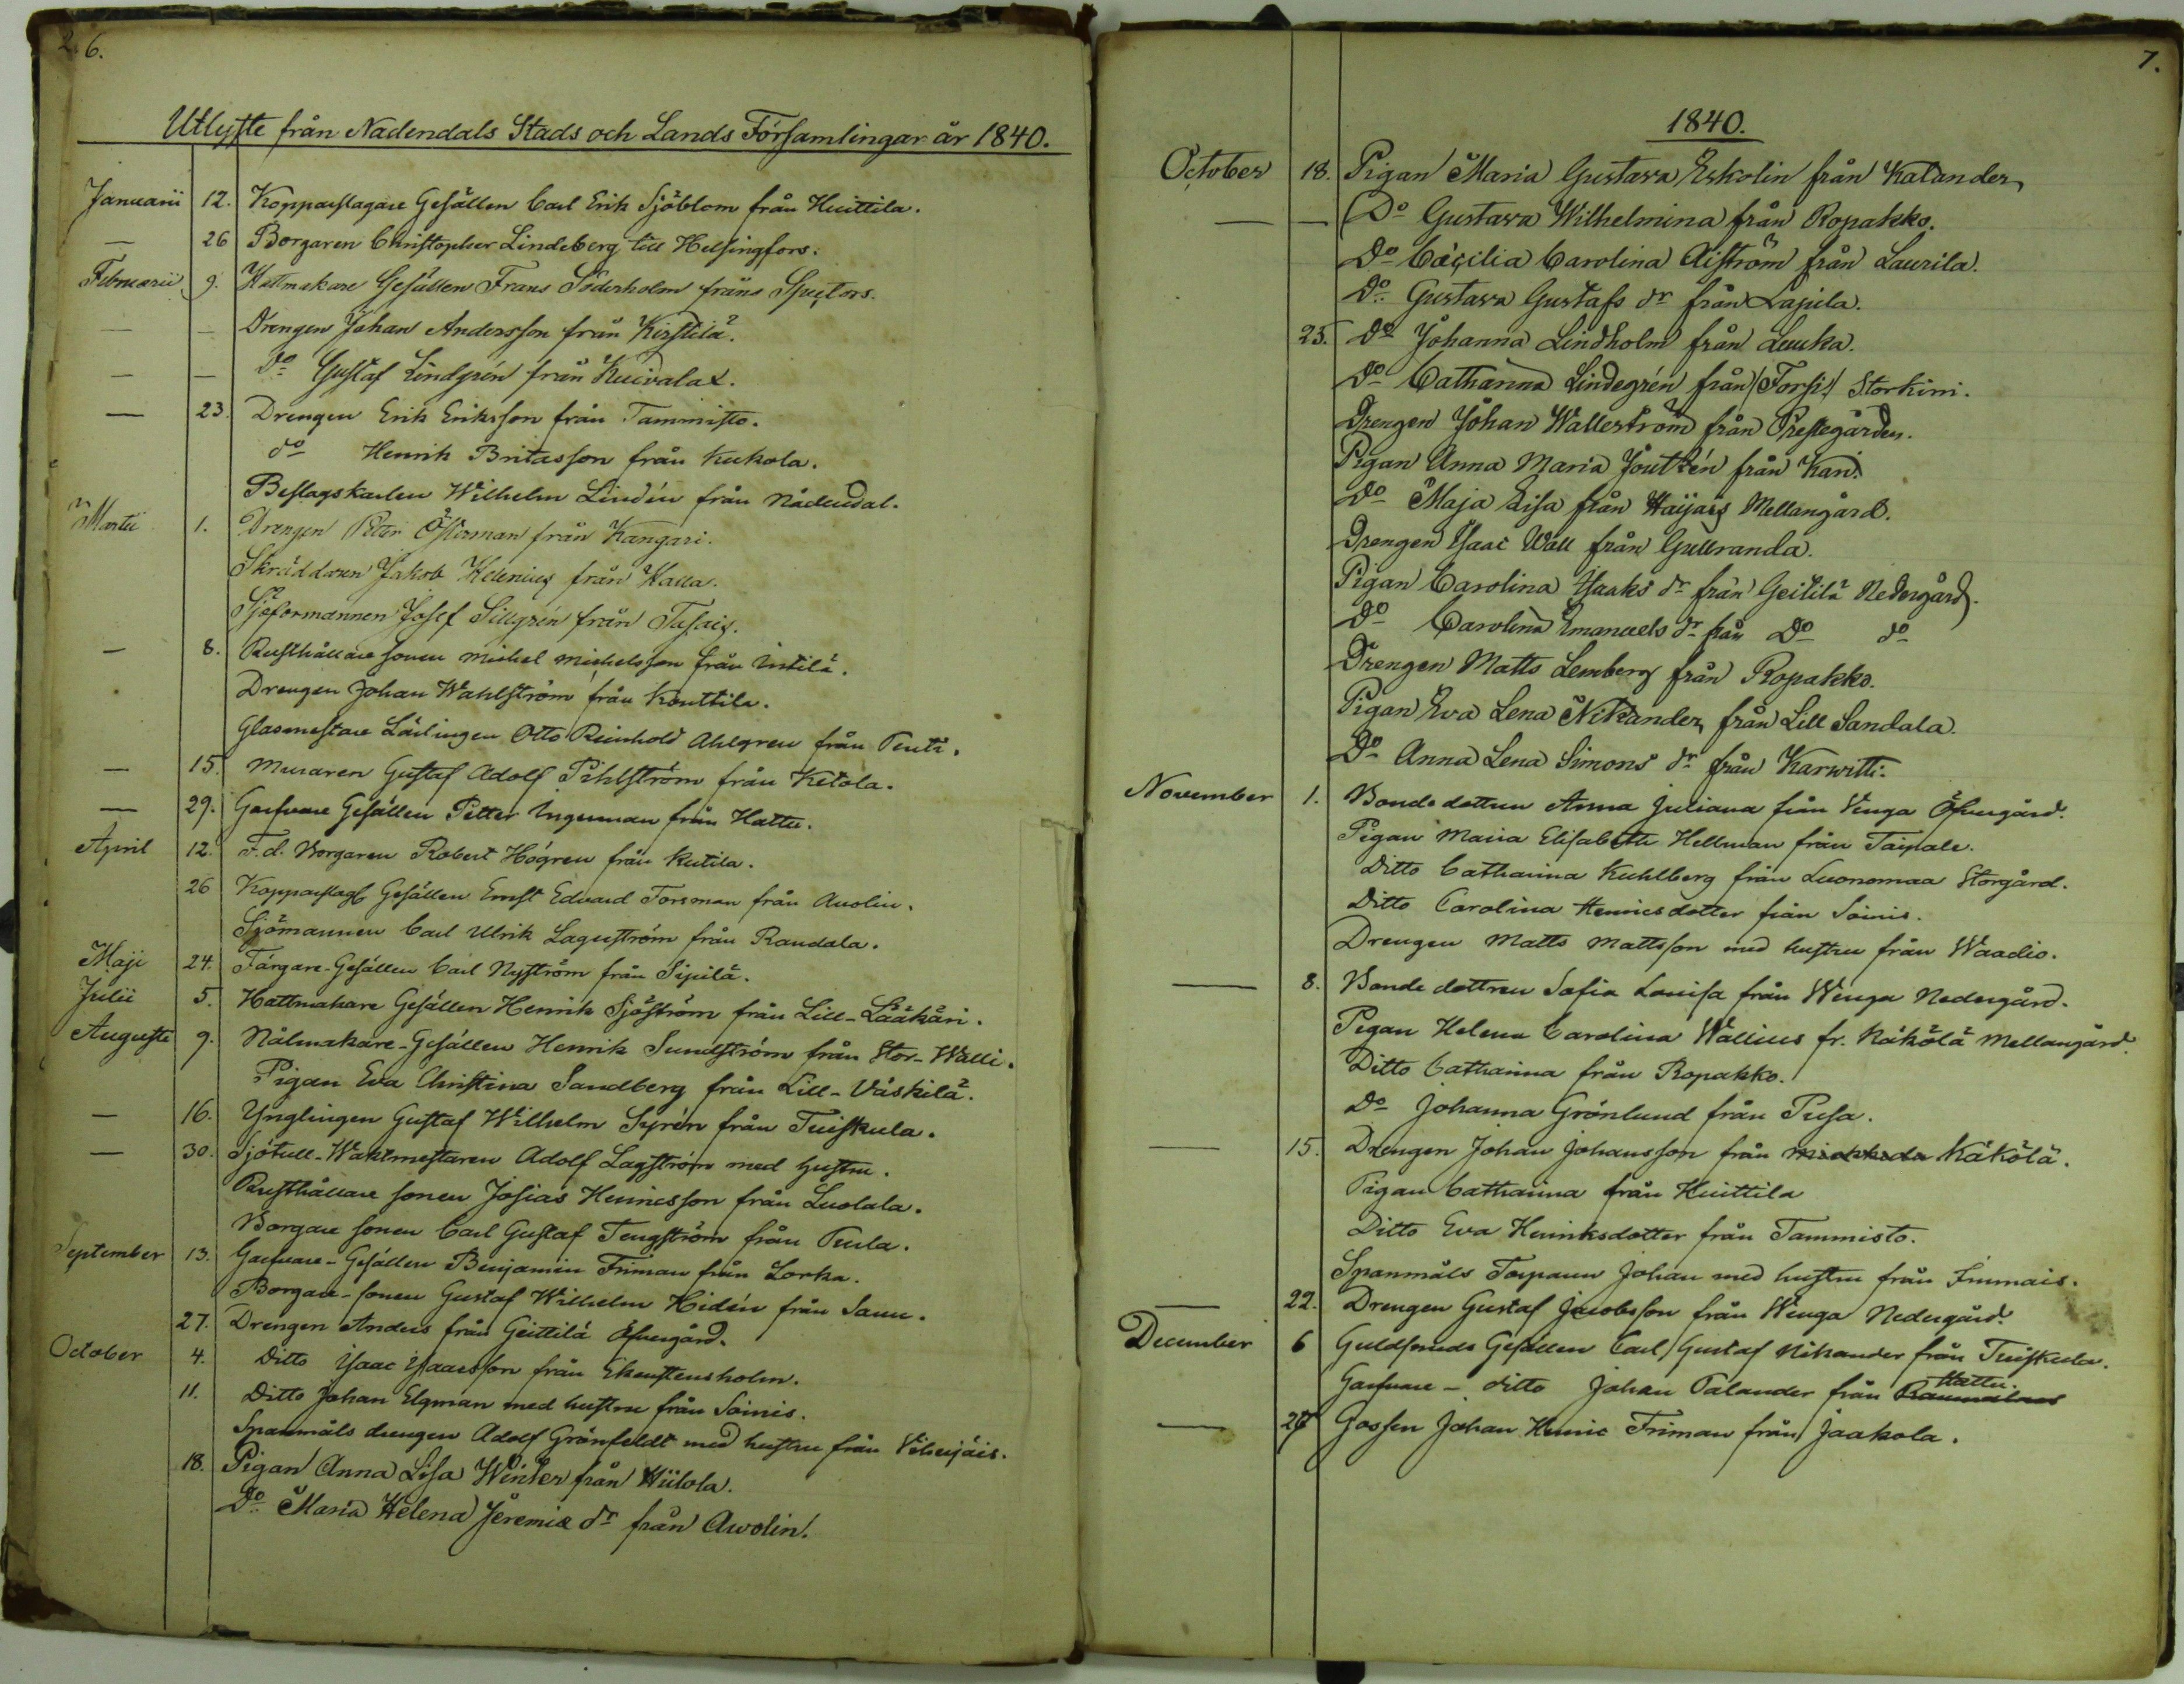 2. 6.
Utlyfte från Nadendals Stads och Lands Församlingar år 1840.
Januarii 12. Kopparslagare Gesällen Carl Erik Sjöblom från Huittila.
— 26 Borgaren Christopher Lindeberg till Helsingfors.
Februarii 9. Hattmakare Gesällen Frans Söderholm från Spectors.
— — Drengen Johan Andersson från Kirstilä.
— — Do Gustaf Lindgrén från Kuivalax.
— 23. Drengen Erik Eriksson från Tammisto.
do Henrik Britasson från Kukola.
Beslagskarlen Wilhelm Lindén från Nådendal.
Martii 1. Drengen Petter Österman från Kangari.
Skräddaren Jakob Helenius från Kalla.
Sjöformannen Josef Sillgrén från Tasais.
— 8. Rusthållare sonen Michel Michelsson från Intilä.
Drengen Johan Wahlström från Konttila.
Glasmestare Lärlingen Otto Reinhold Ahlgren från Penti.
— 15. Muraren Gustaf Adolf Pihlström från Ketola.
— 29. Garfvare Gesällen Petter Ingerman från Hattu.
April 12. F.d. Borgaren Robert Högren från Kutila.
26 Kopparslag. Gesällen Ernst Edvard Forsman från Auolin.
Sjömannen Carl Ulrik Lagerström från Randala.
Maji 24. Färgare-Gesällen Carl Nyström från Sipilä.
Julii 5. Hattmakare Gesällen Henrik Sjöström från Lill-Lääkäri.
Augusti 9. Nålmakare-Gesällen Henrik Sundström från Stor-Walli.
Pigan Eva Christina Sandberg från Lill-Väskilä.
— 16. Ynglingen Gustaf Wilhelm Syrén från Tuiskula.
— 30. Sjötull-Waktmestaren Adolf Lagström med hustru.
Rusthållare sonen Josias Henricsson från Luolala.
Borgare sonen Carl Gustaf Tengström från Perla.
September 13. Garfvare-Gesällen Benjamin Friman från Lorka.
Borgare-sonen Gustaf Wilhelm Hidén från Sanu.
27. Drengen Anders från Geittilä Öfvergård.
October 4. Ditto Isaac Isaacsson från Ekenstensholm.
11. Ditto Johan Elgman med hustru från Soinis.
Spanmåls drengen Adolf Grönfeldt med hustru från Viheriäis.
18. Pigan Anna Lisa Winter från Hiitola.
Do Maria Helena Jeremiæ dr från Awolin.
7.
1840.
October 18. Pigan Maria Gustava Eskolin från Kalander
— — Do Gustava Wilhelmina från Ropakko.
Do Cäcilia Carolina Aiström från Laurila.
Do Gustava Gustafs dr från Lapila.
25. Do Johanna Lindholm från Luuka.
Do Catharina Lindegrén från (Forsi) Storkirri.
Drengen Johan Wallerström från Prestegården.
Pigan Anna Maria Joutzén från Kari.
Do Maja Lisa från Haijais Mellangård.
Drengen Isaac Wall från Gullranda.
Pigan Carolina Isaaks dr från Geitilä Nedergård.
Do Carolina Emanuels dr från Do do
Drengen Matts Lemberg från Ropakko.
Pigan Eva Lena Nikander från Lill Sandala.
Do Anna Lena Simons dr från Karwitti.
November 1. Bonde dottren Anna Juliana från Venga Öfvergård.
Pigan Maria Elisabeth Hellman från Taipale.
Ditto Catharina Kuhlberg från Luonomaa Storgård.
Ditto Carolina Henricsdotter från Soinis.
Drengen Matts Mattsson med hustru från Waadio.
— 8. Bonde dottren Sofia Lovisa från Wenga Nedergård.
Pigan Helena Carolina Wallius fr. Käkölä Mellangård.
Ditto Catharina från Ropakko.
Do Johanna Grönlund från Pusa.
— 15. Drengen Johan Johansson från Käkölä.
Pigan Catharina från Huittila
Ditto Eva Henriksdotter från Tammisto.
Spanmåls Torparen Johan med hustru från Immais.
— 22. Drengen Gustaf Jacobsson från Wenga Nedergård.
December 6 Guldsmeds Gesällen Carl Gustaf Nikander från Tuiskula.
Garfvare- ditto Johan Palander från Hattu.
— 26 Gossen Johan Henric Friman från Jaakola.